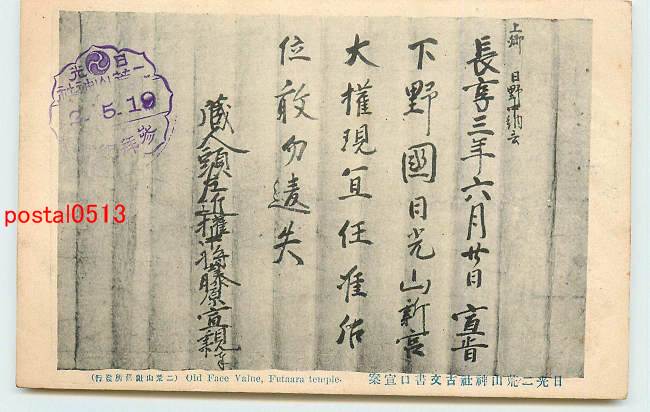 上卿 日野中納言
長享三年六月廿日 宣旨
下野國日光山新宮
大權現宜任准佑
位敢勿遺失
蔵人頭左近權中将藤原宣親奉
日光二荒山神社
2.5.19
postal0513
日光二荒山神社古文書口宣案
Old Face Value, Futaara temple.
(二荒山神社社務所發行)